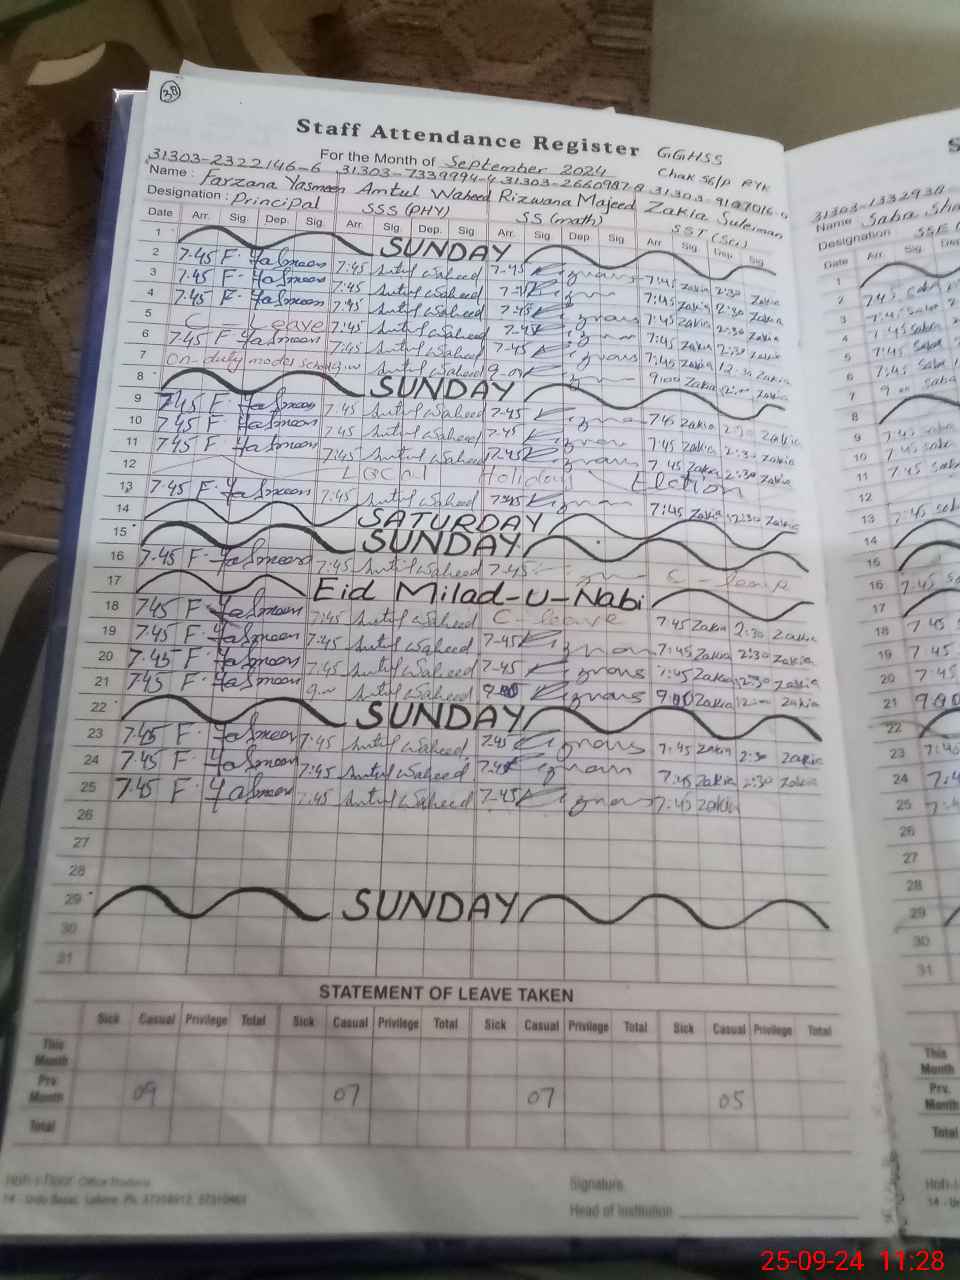 38
Staff Attendance Register GGHSS
For the Month of September 2024 Chak 56/P RYK
31303-2322146-6 31303-7339994-4 31303-2660987-8 31303-9107016-0
Name: Farzana Yasmeen Amtul Waheed Rizwana Majeed Zakia Suleiman
Designation: Principal SSS (PHY) SS (math) SST (Sci)
Date Arr. Sig. Dep. Sig. Arr. Sig. Dep. Sig. Arr. Sig. Dep. Sig. Arr. Sig. Dep. Sig.
1 SUNDAY
2 7.45 F. Yasmeen 7:45 Amtul Waheed 7-45 7:45 Zakia 2:30 Zakia
3 7.45 F. Yasmeen 7:45 Amtul Waheed 7:45 Zakia 2:30 Zakia
4 7.45 F. Yasmeen 7:45 Amtul Waheed 7-45 7:45 Zakia 2:30 Zakia
5 C - Leave 7:45 Amtul Waheed 7-45 7:45 Zakia 2:30 Zakia
6 7.45 F. Yasmeen 7:45 Amtul Waheed 7-45 7:45 Zakia 12:30 Zakia
7 on-duty model school Amtul Waheed 9:00 Zakia 12:00 Zakia
8 SUNDAY
9 7.45 F. Yasmeen 7:45 Amtul Waheed 7-45 7:45 Zakia 2:30 Zakia
10 7.45 F. Yasmeen 7:45 Amtul Waheed 7-45 7:45 Zakia 2:30 Zakia
11 7.45 F. Yasmeen 7:45 Amtul Waheed 7.45 7:45 Zakia 2:30 Zakia
12 Local Holiday Election
13 7.45 F. Yasmeen 7:45 Amtul Waheed 7:45 7:45 Zakia 12:30 Zakia
14 SATURDAY
15 SUNDAY
16 7.45 F. Yasmeen 7:45 Amtul Waheed 7-45 C - leave
17 Eid Milad-u-Nabi
18 7.45 F. Yasmeen 7:45 Amtul Waheed C - leave 7:45 Zakia 2:30 Zakia
19 7.45 F. Yasmeen 7:45 Amtul Waheed 7-45 7:45 Zakia 2:30 Zakia
20 7.45 F. Yasmeen 7:45 Amtul Waheed 7-45 7:45 Zakia 2:30 Zakia
21 7.45 F. Yasmeen Amtul Waheed 9:00 Zakia 12:00 Zakia
22 SUNDAY
23 7.45 F. Yasmeen 7:45 Amtul Waheed 7.45 7:45 Zakia 2:30 Zakia
24 7.45 F. Yasmeen 7:45 Amtul Waheed 7.45 7:45 Zakia 2:30 Zakia
25 7.45 F. Yasmeen 7:45 Amtul Waheed 7-45 7:45 Zakia
26
27
28
29 SUNDAY
30
31
STATEMENT OF LEAVE TAKEN
Sick Casual Privilege Total Sick Casual Privilege Total Sick Casual Privilege Total Sick Casual Privilege Total
This Month
Prv. Month 09 07 07 05
Total
Signature
Head of Institution
Name Saba
Designation SSE
Date Arr. Sig.
1
2 7:45 Saba
3 7:45 Saba
4 7:45 Saba
5 7:45 Saba
6 7:45 Saba
7 9 Saba
8
9 7:45 Saba
10 7:45 Saba
11 7:45 Saba
12
13 7:45 Saba
14
15
16 7:45
17
18 7:45
19 7:45
20 7:45
21 9:00
22
23
24
25
26
27
28
29
30
31
This Month
Prv. Month
Total
25-09-24 11:28